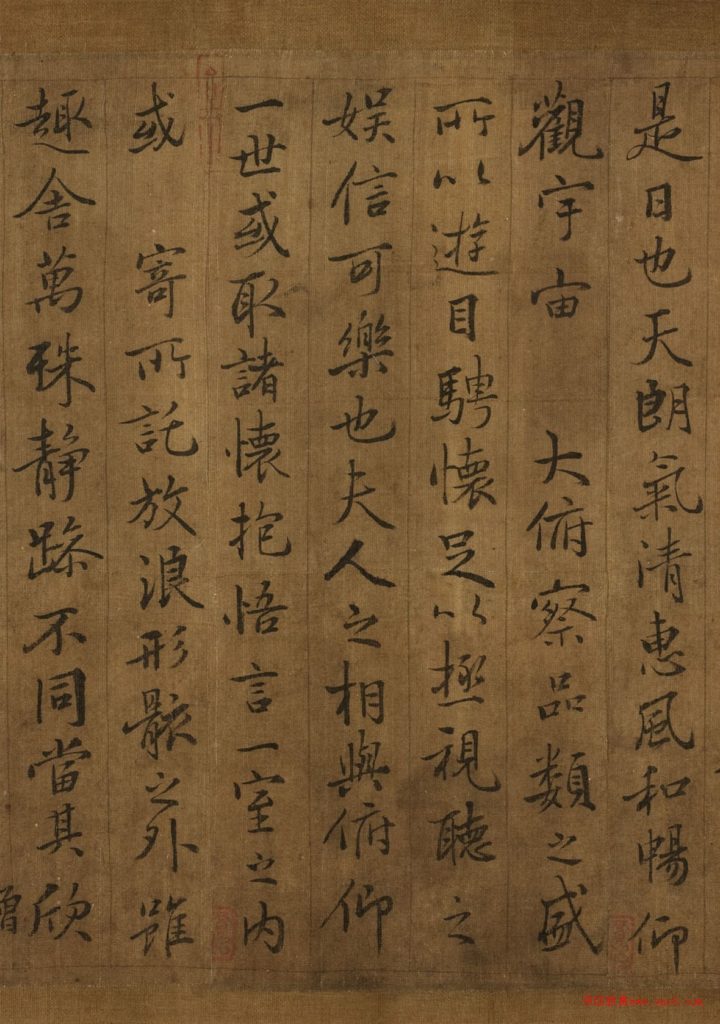 是日也天朗氣清惠風和暢仰
觀宇宙 大俯察品類之盛
所以遊目騁懷足以極視聽之
娛信可樂也夫人之相與俯仰
一世或取諸懷抱悟言一室之內
或 寄所託放浪形骸之外雖
趣舍萬殊静躁不同當其欣